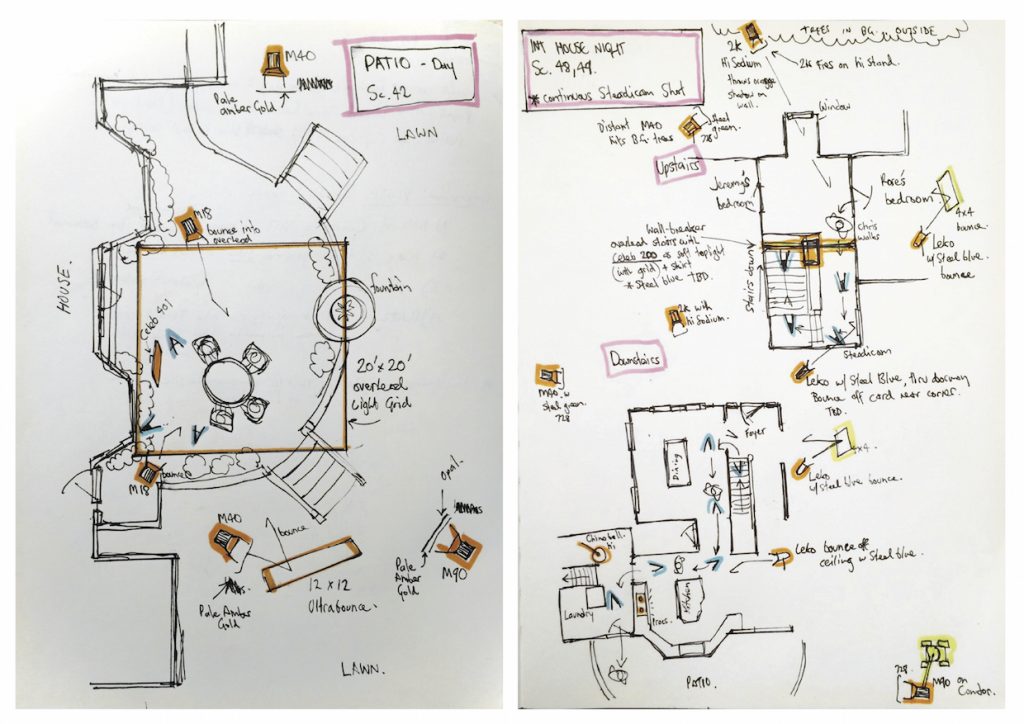 M40
Pale
amber Gold
PATIO - Day
Sc. 42
LAWN
M18
bounce into
overhead
HOUSE.
fountain
Celeb 401
A
20' x 20'
overhead
Light Grid
M18
bounce
M40
bounce
Pale Amber
Gold
12 x 12
Ultrabounce.
opal.
Pale
Amber
Gold
M90
LAWN.
INT HOUSE NIGHT
Sc. 48, 49.
* Continuous Steadicam Shot
TREES IN BG. OUTSIDE
2K
Hi Sodium
throws orange
shadow on
wall.
2K Fres on hi stand.
Window
Distant M40
hits B.G. trees
Steel
green.
728
Upstairs
Jeremy's
bedroom
Rose's
bedroom
4x4
bounce.
Chris
walks
Leko
w/ Steel blue
bounce
Wall-breaker
overhead stairs with
Celeb 200 as soft toplight
(with grid) + skirt
* Steel blue TBD.
Stairs down
2K with
hi Sodium.
Downstairs
Steadicam
Leko w/ Steel Blue, thru doorway
Bounce off card near corner.
TBD.
M90 w
Steel green.
728
Foyer
Dining
4x4.
Leko
w/ steel blue bounce.
China ball.
hi
Leko bounce off
ceiling w Steel blue.
Laundry
Pracs.
Kitchen
PATIO.
728
M90 on
Condor.